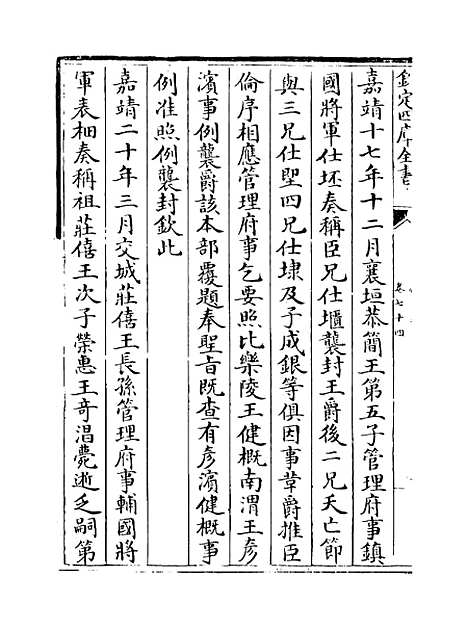 欽定四庫全書
卷七十四
嘉靖十七年十二月襄垣恭簡王第五子管理府事鎮
國將軍仕坯奏稱臣兄仕㙺襲封王爵後二兄夭亡節
與三兄仕堲四兄仕埭及子成銀等俱因事革爵推臣
倫序相應管理府事乞要照比樂陵王健概南渭王彥
濱事例襲爵該本部覆題奉聖旨既查有彥濱健概事
例准照例襲封欽此
嘉靖二十年三月交城莊僖王長孫管理府事輔國將
軍表柟奏稱祖莊僖王次子榮惠王奇淐薨逝乏嗣第